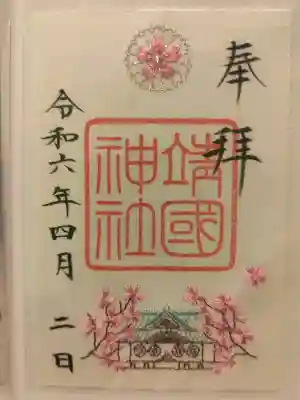 奉拝
靖國
神社
令和六年四月二日